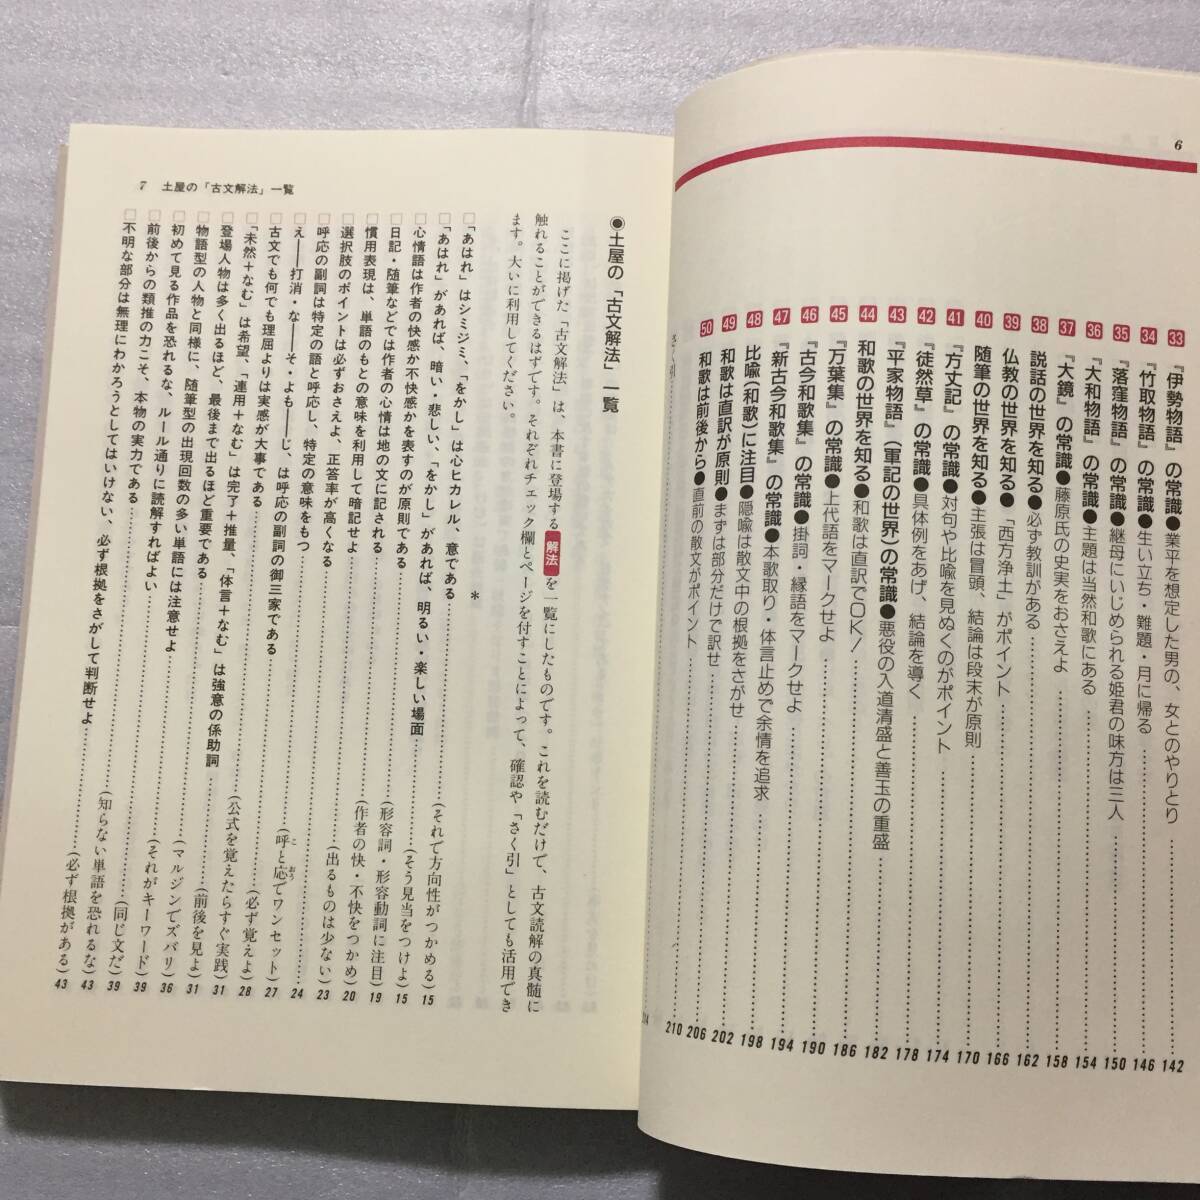 6
33 『伊勢物語』の常識●業平を想定した男の、女とのやりとり……142
34 『竹取物語』の常識●生い立ち・難題・月に帰る……146
35 『落窪物語』の常識●継母にいじめられる姫君の味方は三人……150
36 『大和物語』の常識●主題は当然和歌にある……154
37 『大鏡』の常識●藤原氏の史実をおさえよ……158
38 説話の世界を知る●必ず教訓がある……162
39 仏教の世界を知る●「西方浄土」がポイント……166
40 随筆の世界を知る●主張は冒頭、結論は段末が原則……170
41 『方丈記』の常識●対句や比喩を見ぬくのがポイント……174
42 『徒然草』の常識●具体例をあげ、結論を導く……178
43 『平家物語』(軍記の世界)の常識●悪役の入道清盛と善玉の重盛……182
44 和歌の世界を知る●和歌は直訳でOK!……186
45 『万葉集』の常識●上代語をマークせよ……190
46 『古今和歌集』の常識●掛詞・縁語をマークせよ……194
47 『新古今和歌集』の常識●本歌取り・体言止めで余情を追求……198
48 比喩(和歌)に注目●隠喩は散文中の根拠をさがせ……202
49 和歌は直訳が原則●まずは部分だけで訳せ……206
50 和歌は前後から●直前の散文がポイント……210
さくいん引……214
7 土屋の「古文解法」一覧
●土屋の「古文解法」一覧
ここに掲げた「古文解法」は、本書に登場する解法を一覧にしたものです。これを読むだけで、古文読解の真髄に
触れることができるはずです。それぞれチェック欄とページを付すことによって、確認や「さく引」としても活用でき
ます。大いに利用してください。
*
□「あはれ」はシミジミ、「をかし」は心ヒカレル、意である……(それで方向性がつかめる)15
□「あはれ」があれば、暗い・悲しい、「をかし」があれば、明るい・楽しい場面……(そう見当をつけよ)15
□心情語は作者の快感か不快感かを表すのが原則である……(形容詞・形容動詞に注目)19
□日記・随筆などでは作者の心情は地の文に記される……(作者の快・不快をつかめ)20
□慣用表現は、単語のもとの意味を利用して暗記せよ……(出るものは少ない)23
□選択肢のポイントは必ずおさえよ、正答率が高くなる……24
□呼応の副詞は特定の語と呼応し、特定の意味をもつ……(呼と応でワンセット)27
□え——打消・な——そ・よも——じ、は呼応の副詞の御三家である……(必ず覚えよ)28
□古文でも何でも理屈よりは実感が大事である……(公式を覚えたらすぐ実践)31
□「未然+なむ」は希望、「連用+なむ」は完了+推量、「体言+なむ」は強意の係助詞……(前後を見よ)31
□登場人物は多く出るほど、最後まで出るほど重要である……(マルジンでズバリ)36
□物語型の人物と同様に、随筆型の出現回数の多い単語には注意せよ……(それがキーワード)39
□初めて見る作品を恐れるな、ルール通りに読解すればよい……(同じ文だ)39
□前後からの類推の力こそ、本物の実力である……(知らない単語を恐れるな)43
□不明な部分は無理にわかろうとしてはいけない、必ず根拠をさがして判断せよ……(必ず根拠がある)43